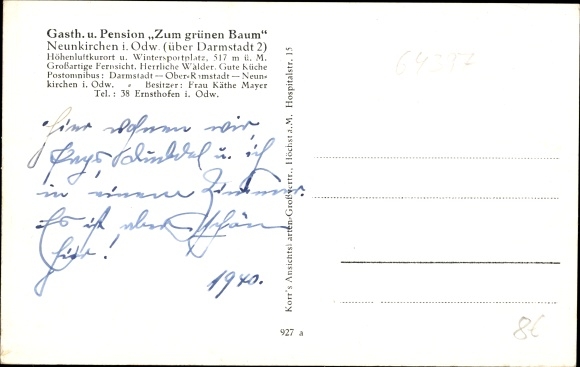 Gasth. u. Pension „Zum grünen Baum"
Neunkirchen i. Odw. (über Darmstadt 2)
Höhenluftkurort u. Wintersportplatz, 517 m ü. M.
Großartige Fernsicht. Herrliche Wälder. Gute Küche
Postomnibus: Darmstadt — Ober-Ramstadt — Neun-
kirchen i. Odw. • Besitzer: Frau Käthe Mayer
Tel.: 38 Ernsthofen i. Odw.
Hier wohnen wir,
u. ich
in einem Zimmer.
Es ist aber schön
hier!
1940.
Korr's Ansichtskarten-Großvertr., Höchst a. M., Hospitalstr. 15
927 a
64397
8€